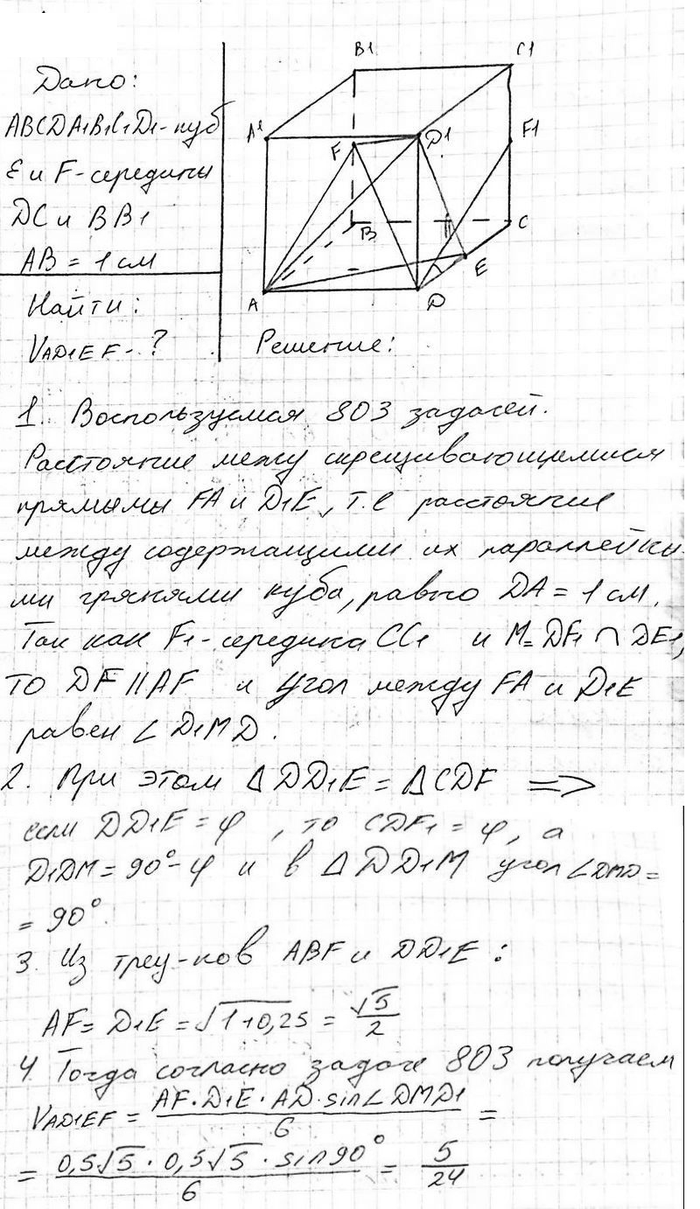 Дано:
ABCDA1B1C1D1-куб
E и F-середины
DC и BB1
AB = 1 см
Найти:
VAD1EF-?
B1
C1
A1
F
D1
F1
B
C
E
A
D
Решение:
1. Воспользуемся 803 задачей.
Расстояние межу скрещивающимися
прямымы FA и D1E, т.е расстояние
между содержащими их параллейны-
ми гранями куба, равно DA = 1 см.
Так как F1-середина CC1 и M=DF1 ∩ DE1,
то DF || AF и угол между FA и D1E
равен ∠ D1MD.
2. При этом ΔDD1E = ΔCDF =>
если DD1E = φ, то CDF1 = φ, а
D1DM = 90° - φ и в Δ DD1M угол ∠DMD =
= 90°.
3. Из треу-ков ABF и DD1E :
AF = D1E = √1+0,25 = √5/2
4. Тогда согласно задаче 803 получаем
VAD1EF = AF·D1E·AD·sin∠DMD1/6 =
= 0,5√5 · 0,5√5 · sin90°/6 = 5/24